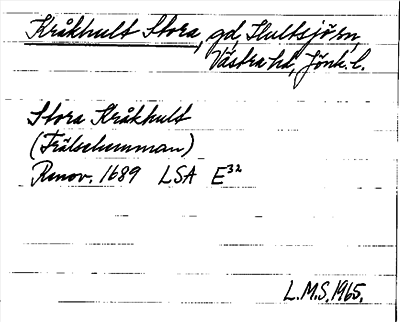 Kråkhult Stora, gd, Hultsjö sn,
Västra hd, Jönk. l.
Stora Kråkhult
(Frälsehemman)
Renov. 1689 LSA E³²
L.M.S. 1965.